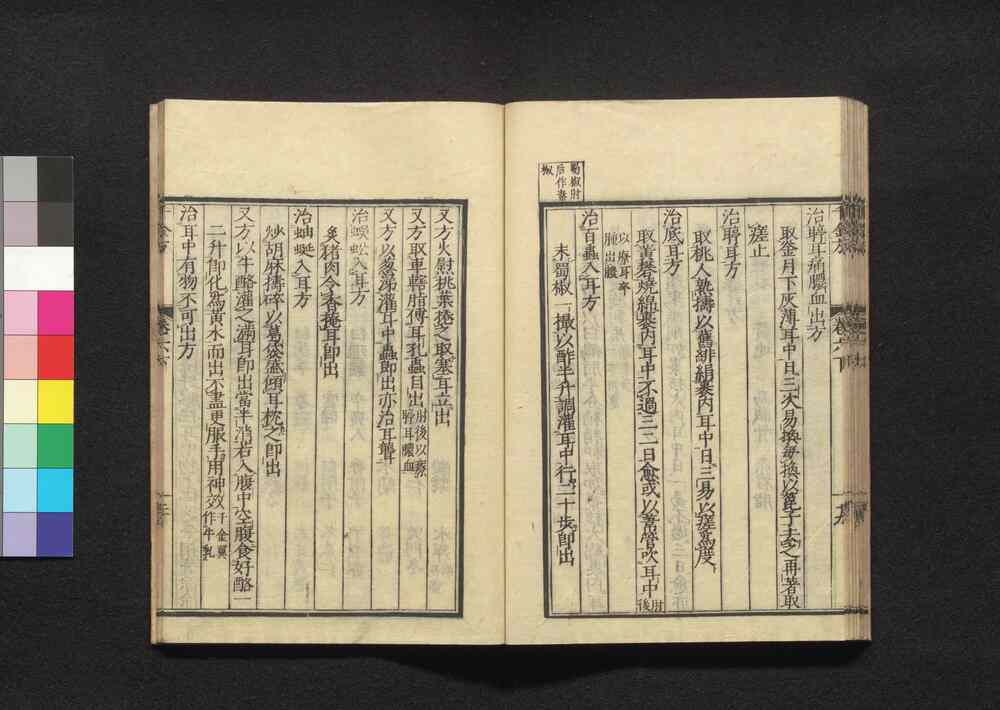 蜀椒肘
后作巻
椒
治聤耳痛膿血出方
取釜月下灰薄耳中日三次易換每換以篦子去之再著取
瘥止
治聤耳方
取桃人熟擣以舊緋絹裹內耳中日三易以瘥爲度
治底耳方
取黃礬燒綿裹內耳中不過三二日愈或以葦管吹耳中肘後
以療耳卒
腫出膿
治百蟲入耳方
末蜀椒一撮以酢半升調灌耳中行二十步卽出
又方火熨桃葉捲之取塞耳立出
又方取車轄脂傅耳孔蟲自出肘後以療
聤耳膿血
又方以葱涕灌耳中蟲卽出亦治耳聾
治蜈蚣入耳方
炙猪肉令香掩耳卽出
治蚰蜒入耳方
炒胡麻擣碎以葛袋盛傾耳枕之卽出
又方以牛酪灌之滿耳卽出當半消若入腹中空腹食好酪一
二升卽化爲黃水而出不盡更服手用神效千金翼
作牛乳
治耳中有物不可出方